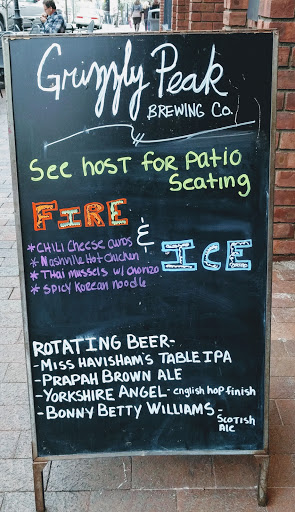 Grizzly Peak
BREWING CO.
SEE HOST FOR PATIO
SEATING
FIRE
&
ICE
* CHILI CHEESE CURDS
* Nashville Hot Chicken
* Thai mussels w/ chorizo
* SPICY KOREAN NOODLE
ROTATING BEER-
- MISS HAVISHAM'S TABLE IPA
- PRAPAH BROWN ALE
- YORKSHIRE ANGEL - english hop finish
- BONNY BETTY WILLIAMS -
SCOTISH
ALE